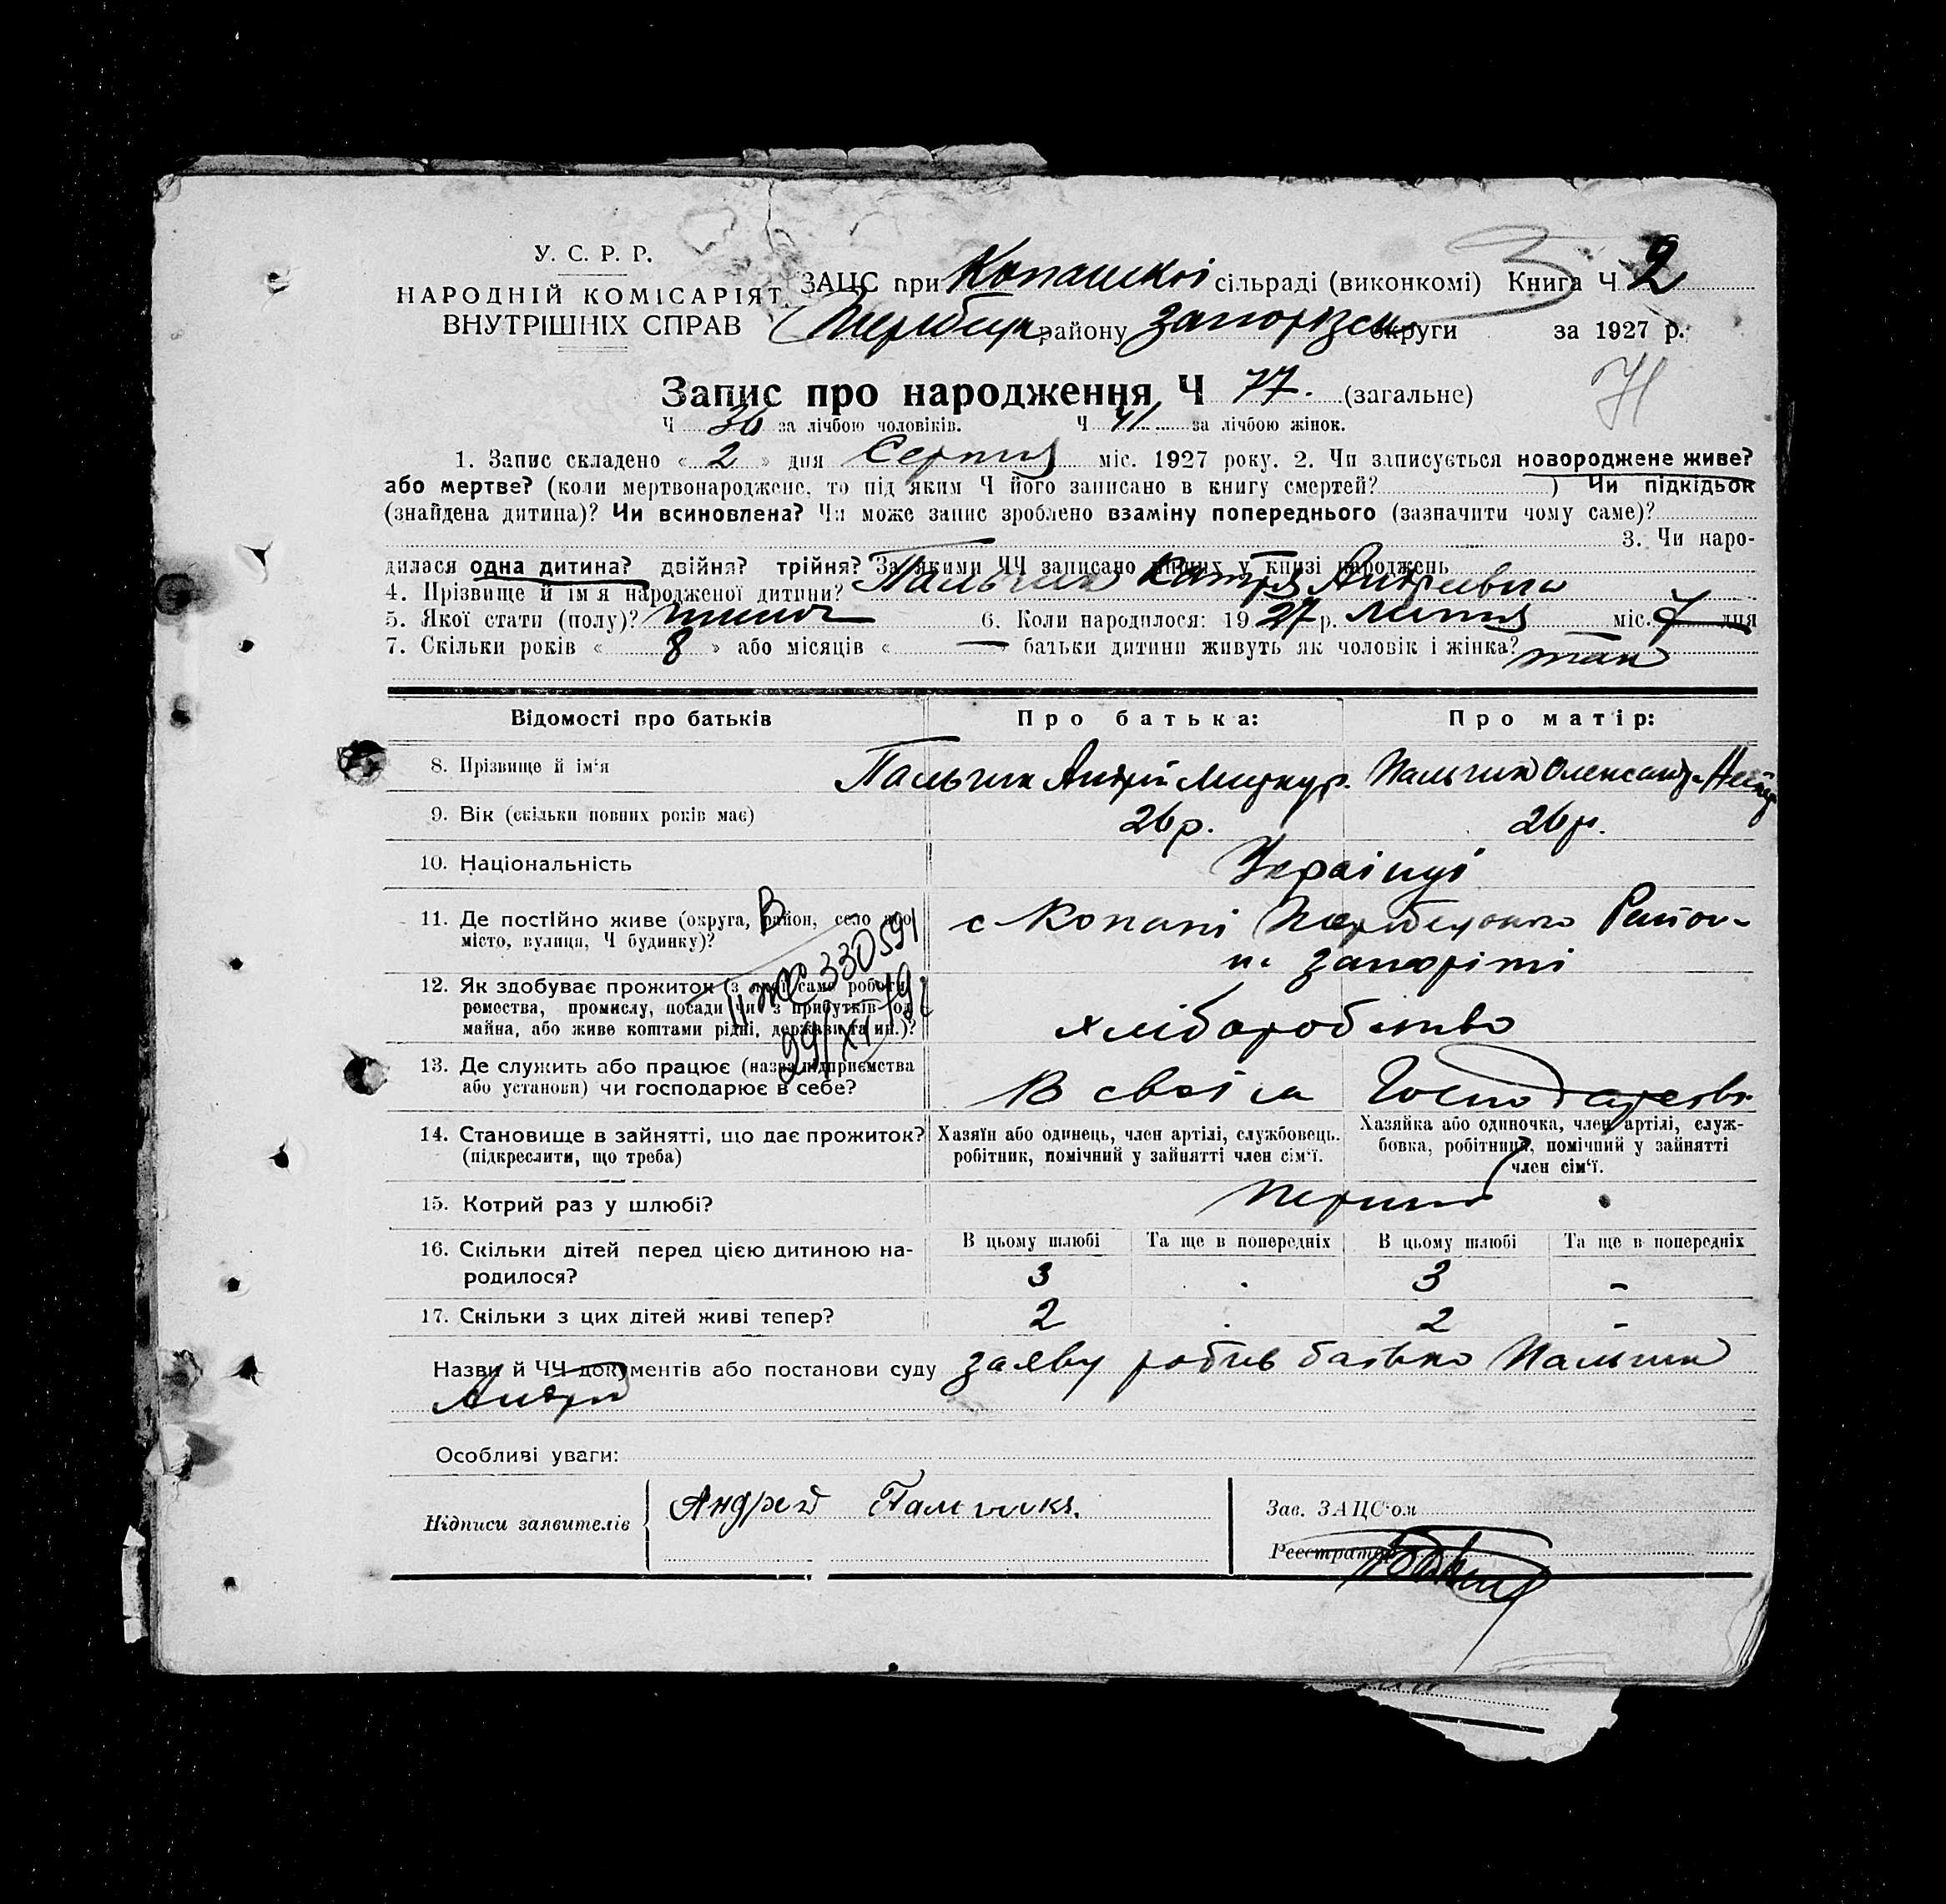 У. С. Р. Р.
НАРОДНІЙ КОМІСАРІЯТ
ВНУТРІШНІХ СПРАВ
ЗАЦС при Копанській сільраді (виконкомі) Книга Ч 2
району Запорізьк округи за 1927 р.
Запис про народження Ч 77. (загальне)
Ч 36 за лічбою чоловіків. Ч 41 за лічбою жінок.
1. Запис складено « 2 » дня Серпня міс. 1927 року. 2. Чи записується новороджене живе?
або мертве? (коли мертвонароджене, то під яким Ч його записано в книгу смертей? ) Чи підкідьок
(знайдена дитина)? Чи всиновлена? Чи може запис зроблено взаміну попереднього (зазначити чому саме)?
3. Чи наро-
дилася одна дитина? двійня? трійня? За якими ЧЧ записано інших у книзі народжень
4. Прізвище й ім'я народженої дитини? Пальчик Катря Андріевна
5. Якої стати (полу)? жиноч 6. Коли народилося: 1927 р. Липня міс. 7 дня
7. Скільки років « 8 » або місяців « — » батьки дитини живуть як чоловік і жінка? так
Відомості про батьків Про батька: Про матір:
8. Прізвище й ім'я Пальчик Андрій Пальчик Олександр
9. Вік (скільки повних років має) 26 р. 26 р.
10. Національність Українці
11. Де постійно живе (округа, район, село або місто, вулиця, Ч будинку)? с Копані Район
В
ІІ ЖС 330591
12. Як здобуває прожиток (з якої саме роботи, ремества, промислу, посади чи з прибутків од майна, або живе коштами рідні, держави та ин.)? хліборобство
29/XI
13. Де служить або працює (назва підприємства або установи) чи господарює в себе? В своім Господарстві
14. Становище в зайнятті, що дає прожиток? (підкреслити, що треба) Хазяїн або одинець, член артілі, службовець. робітник, помічний у зайнятті член сім'ї. Хазяйка або одиночка, член артілі, служ-бовка, робітниця, помічний у зайнятті член сім'ї.
15. Котрий раз у шлюбі? перший
16. Скільки дітей перед цією дитиною на-родилося? В цьому шлюбі 3 Та ще в попередніх . В цьому шлюбі 3 Та ще в попередніх -
17. Скільки з цих дітей живі тепер? 2 . 2 -
Назви й ЧЧ документів або постанови суду заяву робив батько Пальчик
Андрій
Особливі уваги:
Підписи заявителів Андрей Пальчикъ. Зав. ЗАЦС'ом
Реєстратор